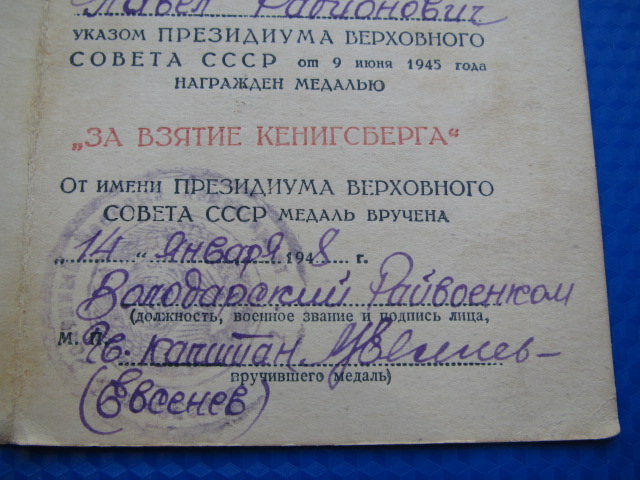 Павел Радионович
указом ПРЕЗИДИУМА ВЕРХОВНОГО
СОВЕТА СССР от 9 июня 1945 года
НАГРАЖДЕН МЕДАЛЬЮ
„ЗА ВЗЯТИЕ КЕНИГСБЕРГА“
От имени ПРЕЗИДИУМА ВЕРХОВНОГО
СОВЕТА СССР МЕДАЛЬ ВРУЧЕНА
„14“ января 1948 г.
Володарский Райвоенком
(должность, военное звание и подпись лица,
М. П. Гв. капитан
вручившего медаль)
(Евсенев)